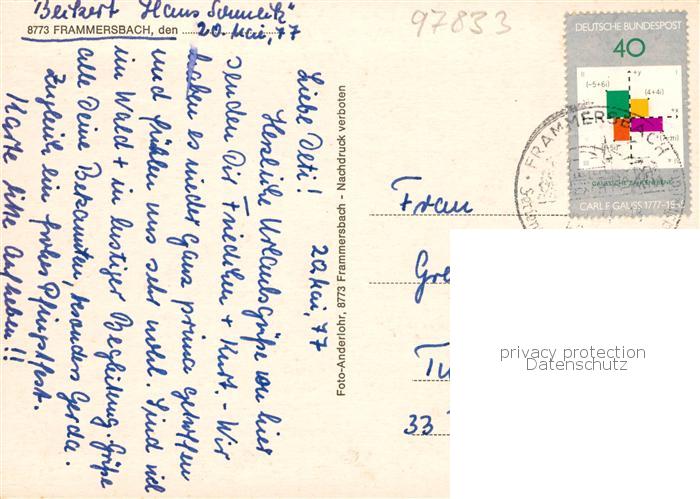 Beikert "Haus Sonneck"
8773 FRAMMERSBACH, den 20. Mai, 77
20. Mai, 77
Liebe Deti!
Herzliche Urlaubsgrüße von hier
senden Dir Friedchen + Kurt. - Wir
haben es wieder ganz prima getroffen
und fühlen uns sehr wohl. Sind viel
im Wald + in lustiger Begleitung. Grüße
alle Deine Bekannten, besonders Gerda.
Zugleich ein frohes Pfingstfest.
Karte bitte aufheben!!
Foto-Anderlohr, 8773 Frammersbach - Nachdruck verboten
97833
DEUTSCHE BUNDESPOST
40
(-5+6i)
+y
(4+4i)
+x
GAUSSSCHE ZAHLENEBENE
CARL F. GAUSS 1777-18
FRAMMERSBACH
Frau
Gre
33
privacy protection
Datenschutz